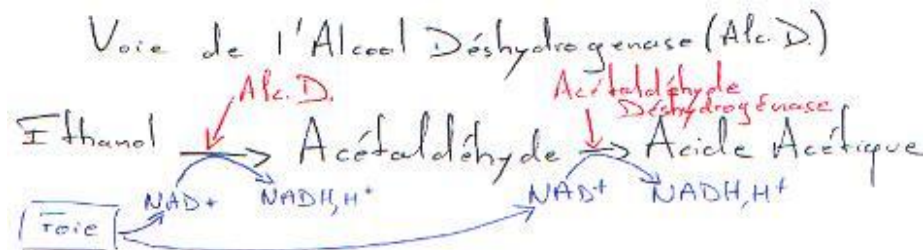 Voie de l'Alcool Déshydrogenase (Alc. D.)
Alc. D.
Acétaldéhyde
Déshydrogénase
Ethanol → Acétaldéhyde → Acide Acétique
NAD+ NADH,H+ NAD+ NADH,H+
Foie